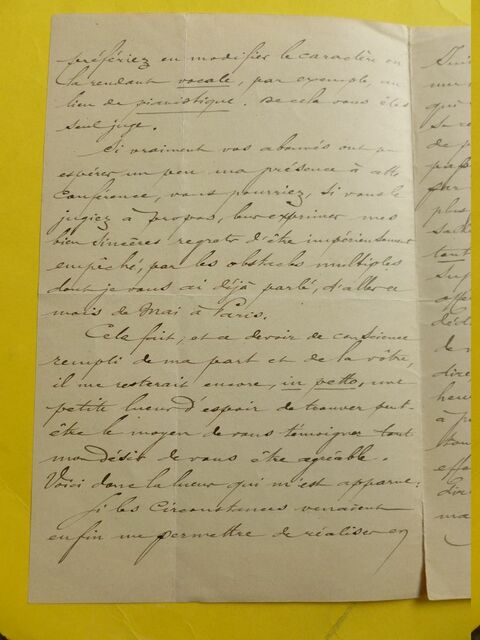 préfériez en modifier le caractère en
la rendant vocale, par exemple, au
lieu de pianistique. De cela vous êtes
seul juge.
Si vraiment vos abonnés ont pu
espérer un peu ma présence à cette
Conférence, vous pourriez, si vous le
jugiez à propos, leur exprimer mes
bien sincères regrets d'être impérieusement
empêché, par les obstacles multiples
dont je vous ai déjà parlé, d'aller au
mois de Mai à Paris.
Cela fait, et ce devoir de conscience
rempli de ma part et de la vôtre,
il me resterait encore, in petto, une
petite lueur d'espoir de trouver peut-
être le moyen de vous témoigner tout
mon désir de vous être agréable.
Voici donc la lueur qui m'est apparue:
Si les Circonstances venaient
enfin me permettre de réaliser en